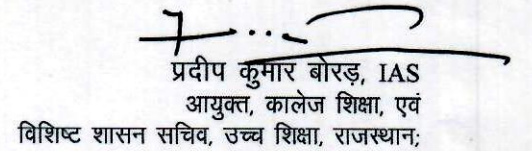 प्रदीप कुमार बोरड़, IAS
आयुक्त, कालेज शिक्षा, एवं
विशिष्ट शासन सचिव, उच्च शिक्षा, राजस्थान;